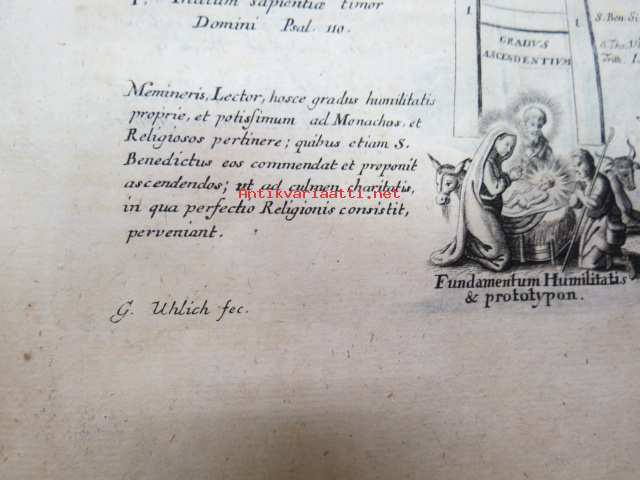 1. Initium sapientiæ timor
Domini Psal. 110.
Memineris, Lector, hosce gradus humilitatis
proprie, et potissimum ad Monachos, et
Religiosos pertinere; quibus etiam S.
Benedictus eos commendat et proponit
ascendendos; ut ad culmen charitatis,
in qua perfectio Religionis consistit,
perveniant.
G. Uhlich fec.
1.
1.
GRADVS
ASCENDENTIVM
S. Ben.
Fundamentum Humilitatis
& prototypon.
Antikvariaatti.net